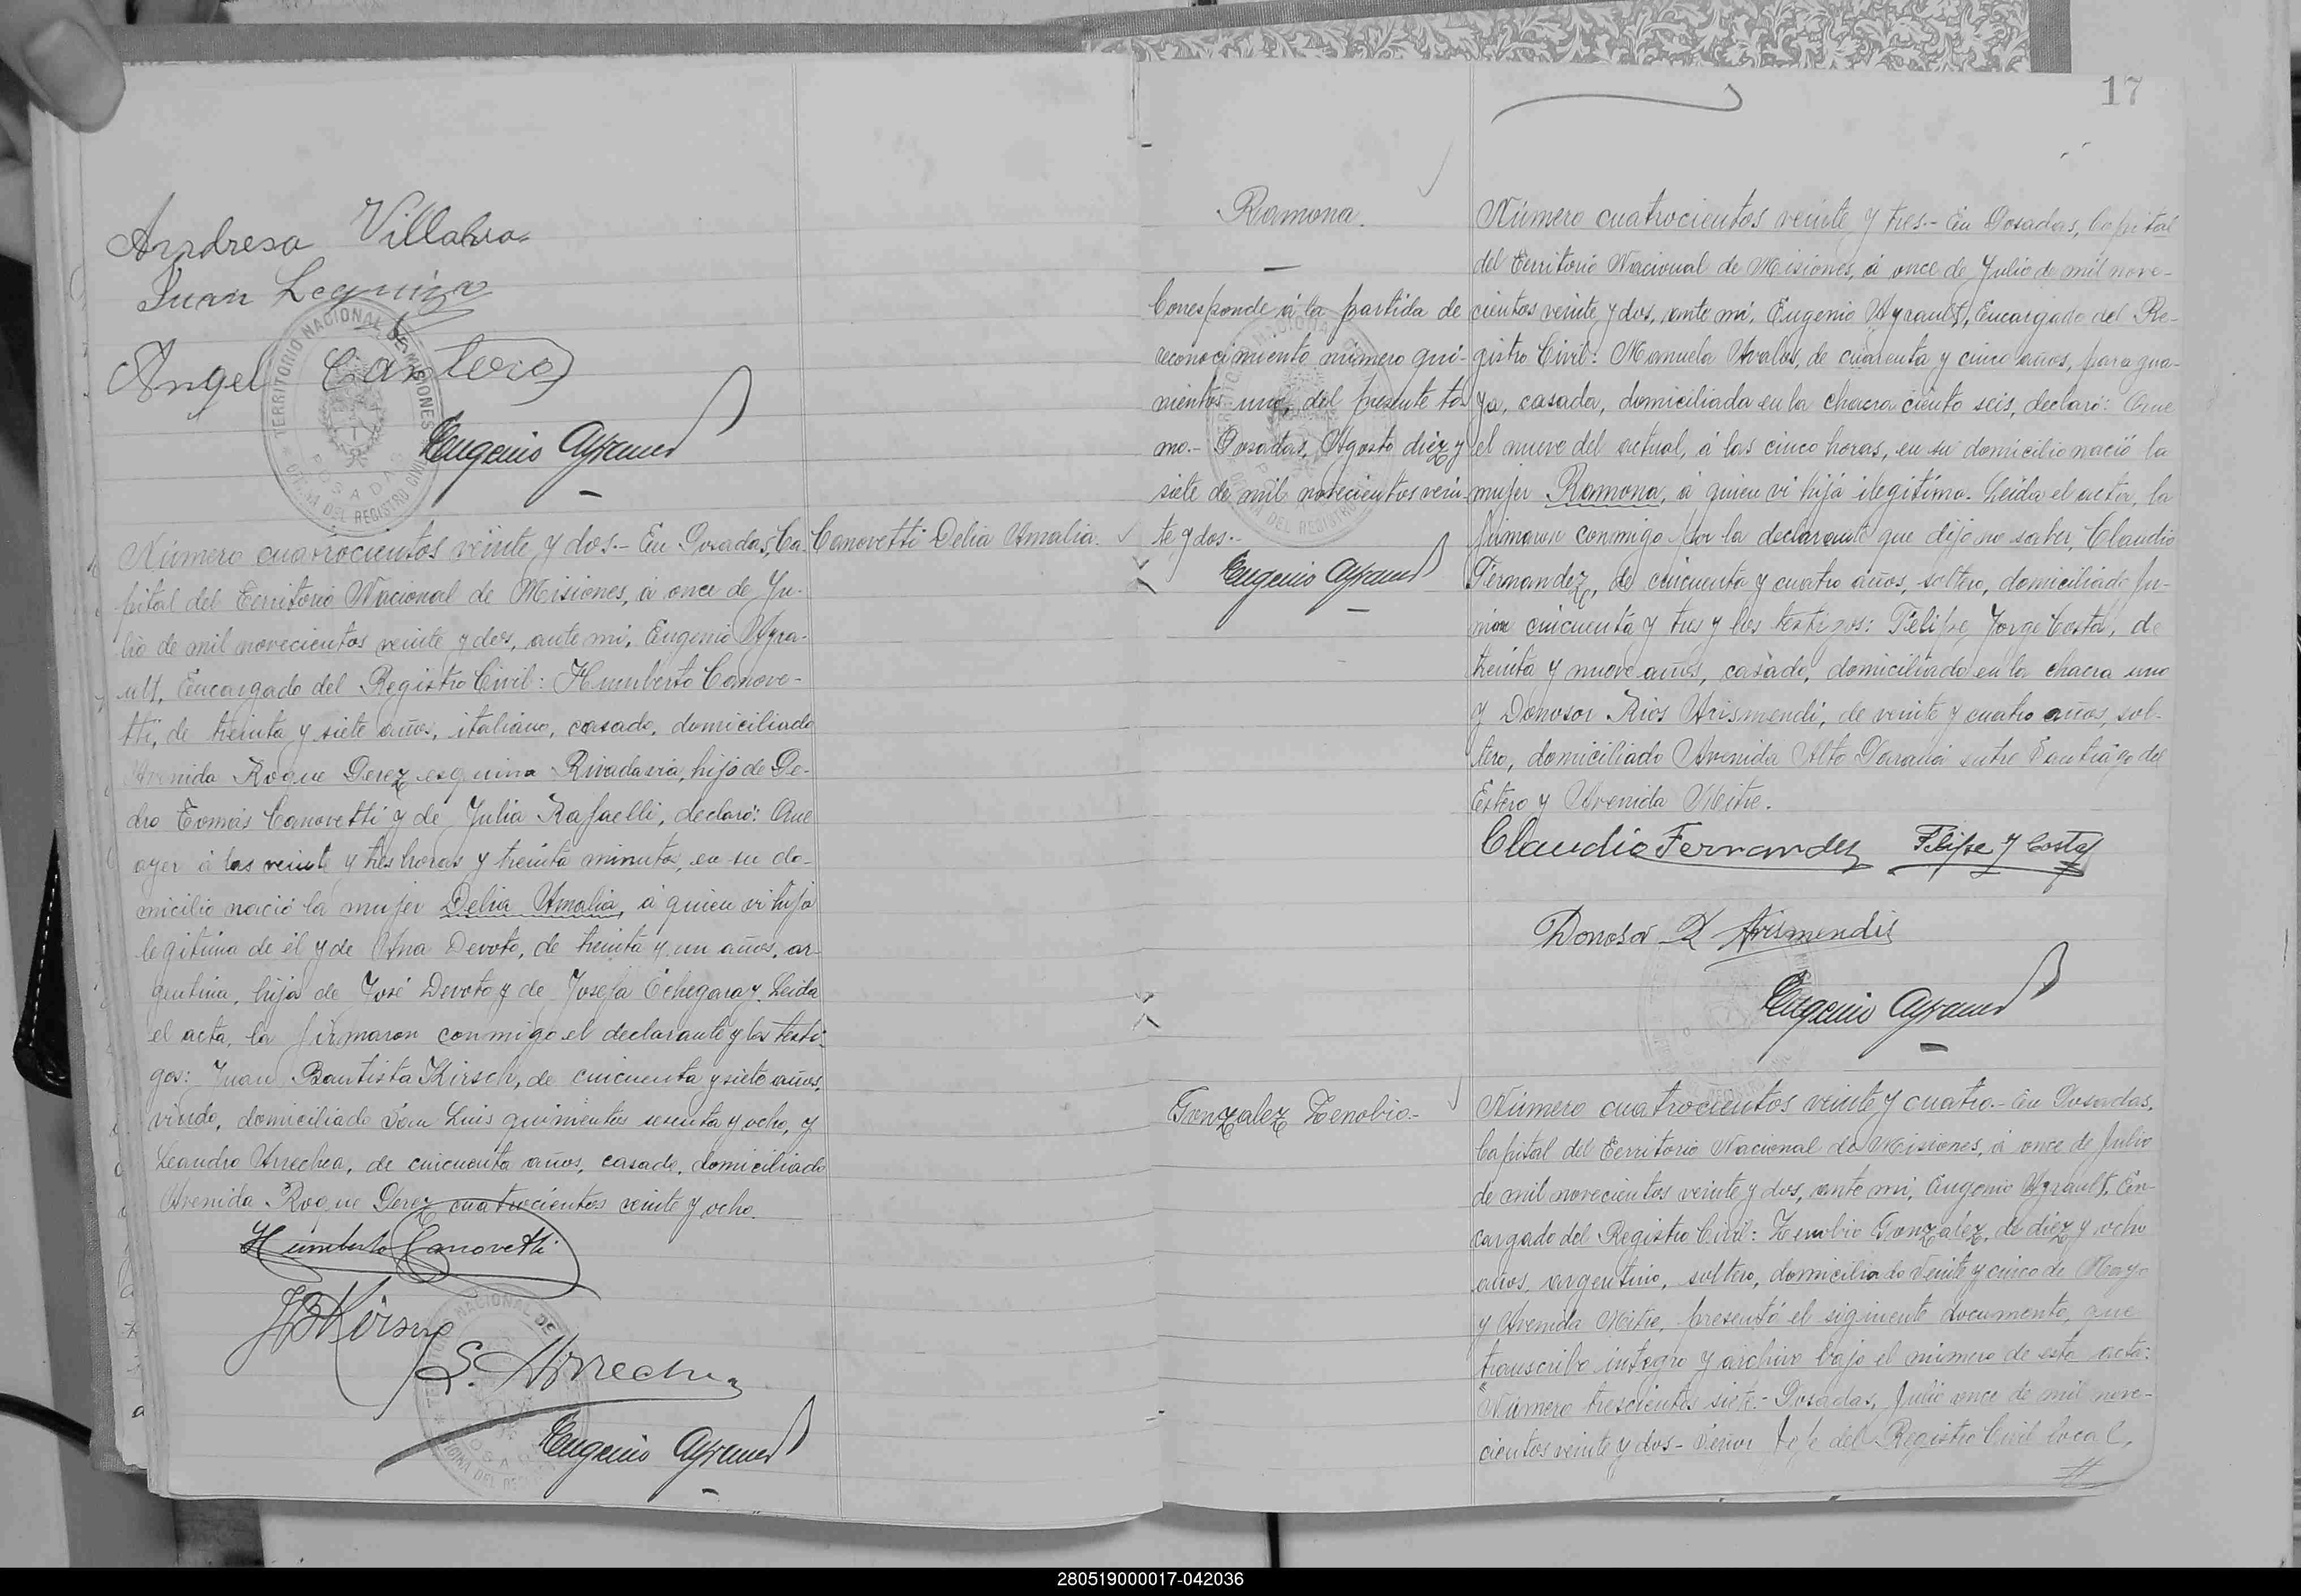 Andresa Villalva
Juan Leguiza
Angel Cantero
TERRITORIO NACIONAL DE MISIONES
POSADAS
OFICINA DEL REGISTRO CIVIL
Eugenio Ayrault
Número cuatrocientos veinte y dos.- En Posadas, Ca-
pital del Territorio Nacional de Misiones, á once de Ju-
lio de mil novecientos veinte y dos, ante mi, Eugenio Ayra-
ult, Encargado del Registro Civil: Humberto Canove-
tti, de treinta y siete años, italiano, casado, domiciliado
Avenida Roque Perez esquina Rivadavia, hijo de Pe-
dro Tomás Canovetti y de Julia Rafaelli, declaró: Que
ayer á las veinte y tres horas y treinta minutos, en su do-
micilio nació la mujer Delia Amalia, á quien vi hija
legitima de él y de Ana Devoto, de treinta y un años, ar-
gentina, hija de José Devoto y de Josefa Echegaray. Leida
el acta, la firmaron conmigo el declarante y los testi-
gos: Juan Bautista Kirsch, de cincuenta y siete años,
viudo, domiciliado San Luis quinientos sesenta y ocho, y
Leandro Arrechea, de cincuenta años, casado, domiciliado
Avenida Roque Perez cuatrocientos veinte y ocho.
Canovetti Delia Amalia.
Humberto Canovetti
JB Kirsch
L. Arrechea
Eugenio Ayrault
17
Ramona.
Corresponde á la partida de
reconocimiento número qui-
nientos uno, del presente to-
mo.- Posadas, Agosto diez y
siete de mil novecientos vein-
te y dos.-
Eugenio Ayrault
Número cuatrocientos veinte y tres.- En Posadas, Capital
del Territorio Nacional de Misiones, á once de Julio de mil nove-
cientos veinte y dos, ante mi, Eugenio Ayrault, Encargado del Re-
gistro Civil: Manuela Avalos, de cuarenta y cinco años, paragua-
ya, casada, domiciliada en la chacra ciento seis, declaró: Que
el nueve del actual, á las cinco horas, en su domicilio nació la
mujer Ramona, á quien vi hija ilegitima. Leida el acta, la
firmaron conmigo por la declarante que dijo no saber, Claudio
Fernandez, de cincuenta y cuatro años, soltero, domiciliado Ju-
nin cincuenta y tres y los testigos: Felipe Jorge Costa, de
treinta y nueve años, casado, domiciliado en la chacra uno
y Donosor Rios Arismendi, de veinte y cuatro años, sol-
tero, domiciliado Avenida Alto Paraná entre Santiago del
Estero y Avenida Mitre.
Claudio Fernandez Felipe J Costa
Donosor R Arismendis
Eugenio Ayrault
Gonzalez Zenobio.-
Número cuatrocientos veinte y cuatro.- En Posadas,
Capital del Territorio Nacional de Misiones, á once de Julio
de mil novecientos veinte y dos, ante mi, Eugenio Ayrault, En-
cargado del Registro Civil: Zenobio Gonzalez, de diez y ocho
años, argentino, soltero, domiciliado Veinte y cinco de Mayo
y Avenida Mitre, presentó el siguiente documento, que
transcribo integro y archivo bajo el número de esta acta:
"Número trescientos siete.- Posadas, Julio once de mil nove-
cientos veinte y dos.- Señor Jefe del Registro Civil local,
280519000017-042036